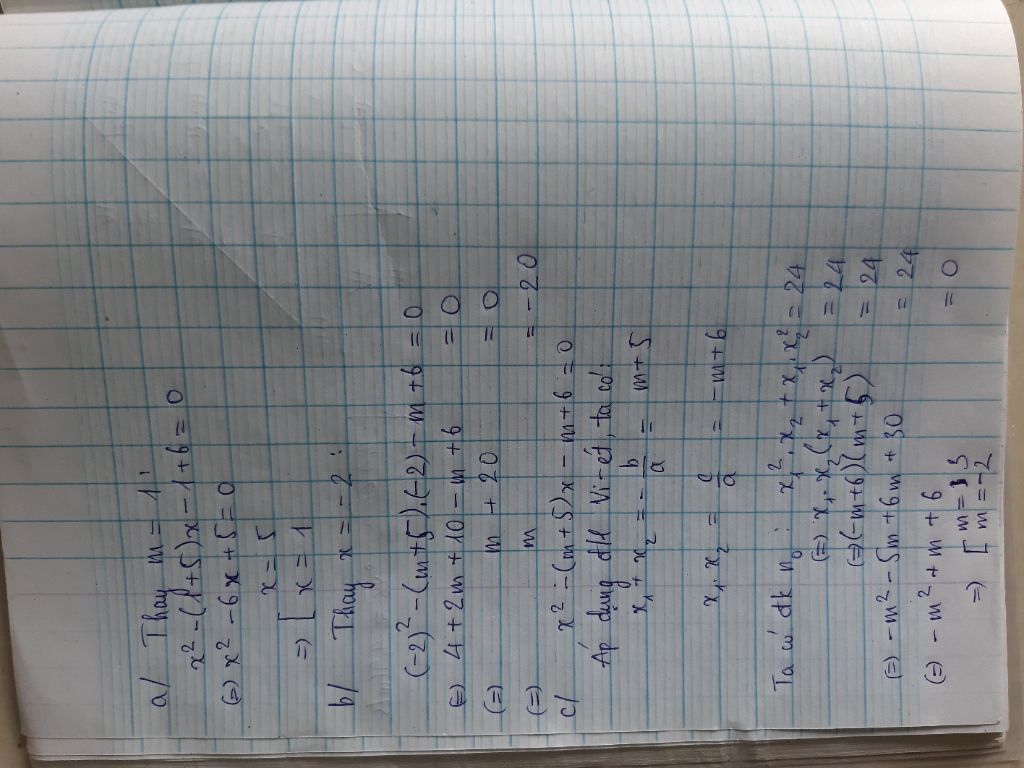 a/ Thay m = 1:
x² - (1+5)x - 1 + 6 = 0
(=) x² - 6x + 5 = 0
=) [ x = 5
x = 1
b/ Thay x = -2:
(-2)² - (m+5).(-2) - m + 6 = 0
(=) 4 + 2m + 10 - m + 6 = 0
(=) m + 20 = 0
(=) m = -20
c/ x² - (m+5)x - m + 6 = 0
Áp dụng đtl Vi-ét, ta có:
x₁ + x₂ = -b/a = m+5
x₁.x₂ = c/a = -m+6
Ta có đk n₀: x₁².x₂ + x₁.x₂² = 24
(=) x₁.x₂(x₁+x₂) = 24
(=) (-m+6)(m+5) = 24
(=) -m² - 5m + 6m + 30 = 24
(=) -m² + m + 6 = 0
=) [ m = 3
m = -2